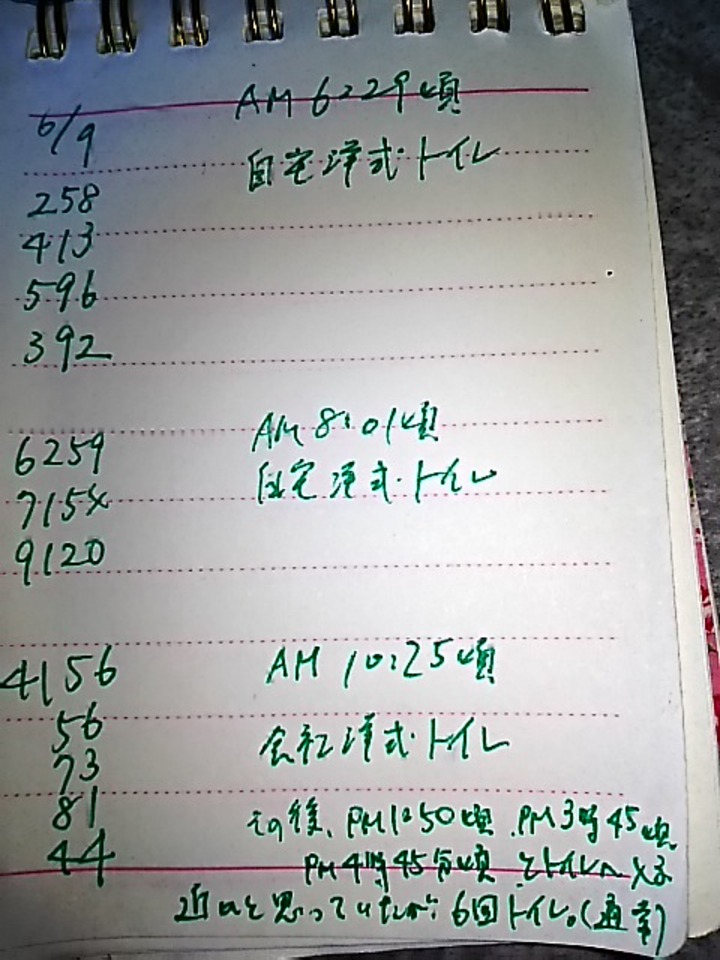 6/9 AM 6:29頃
自宅洋式トイレ
258
413
596
392
AM 8:01頃
6259
自宅洋式トイレ
715
9120
4156 AM 10:25頃
56
会社洋式トイレ
73
81
その後、PM1:50頃 PM3時45頃
44
PM4時45分頃 とトイレへ
近いと思っていたが 6回トイレ。(通常)